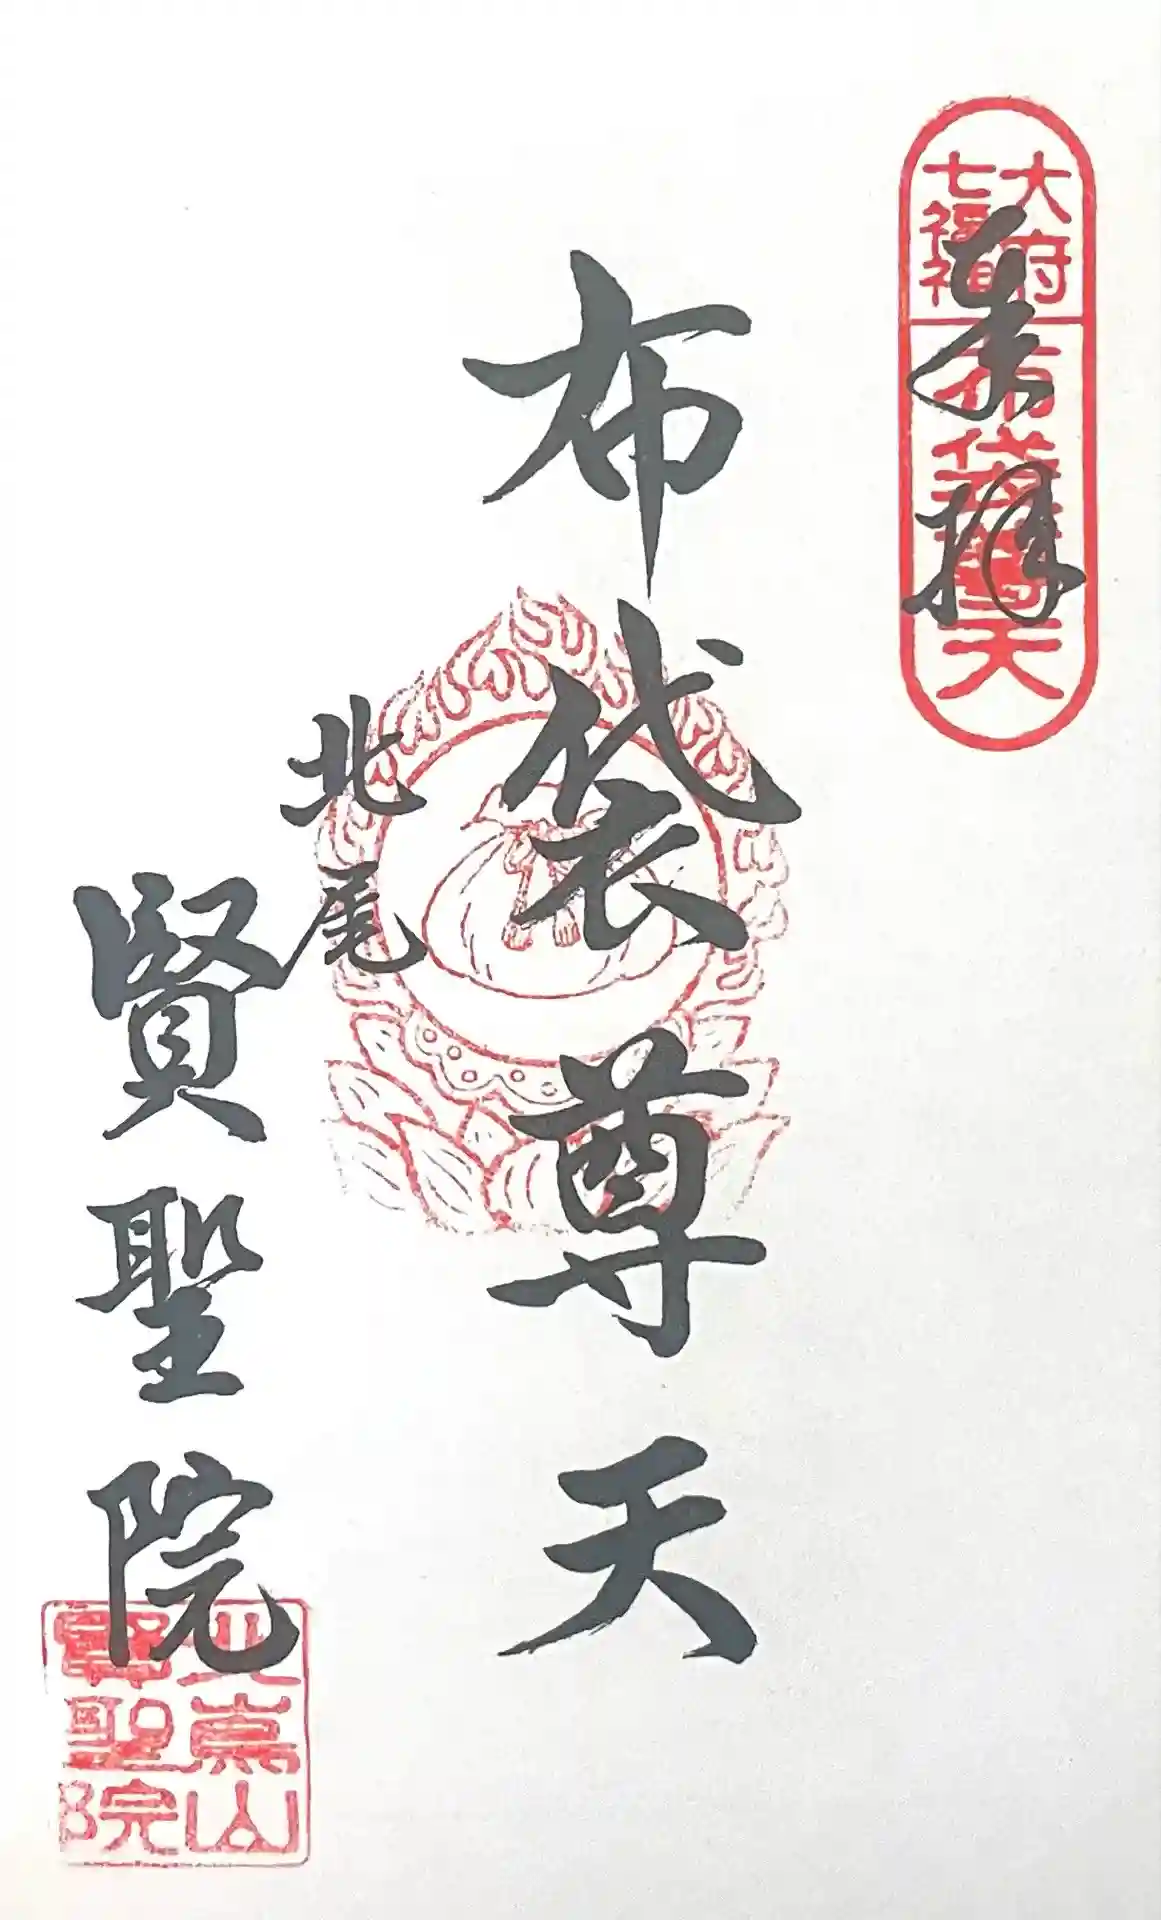 大府
七福神
布袋尊天
奉拝
布袋尊天
北尾
賢聖院
嵩山
賢聖院